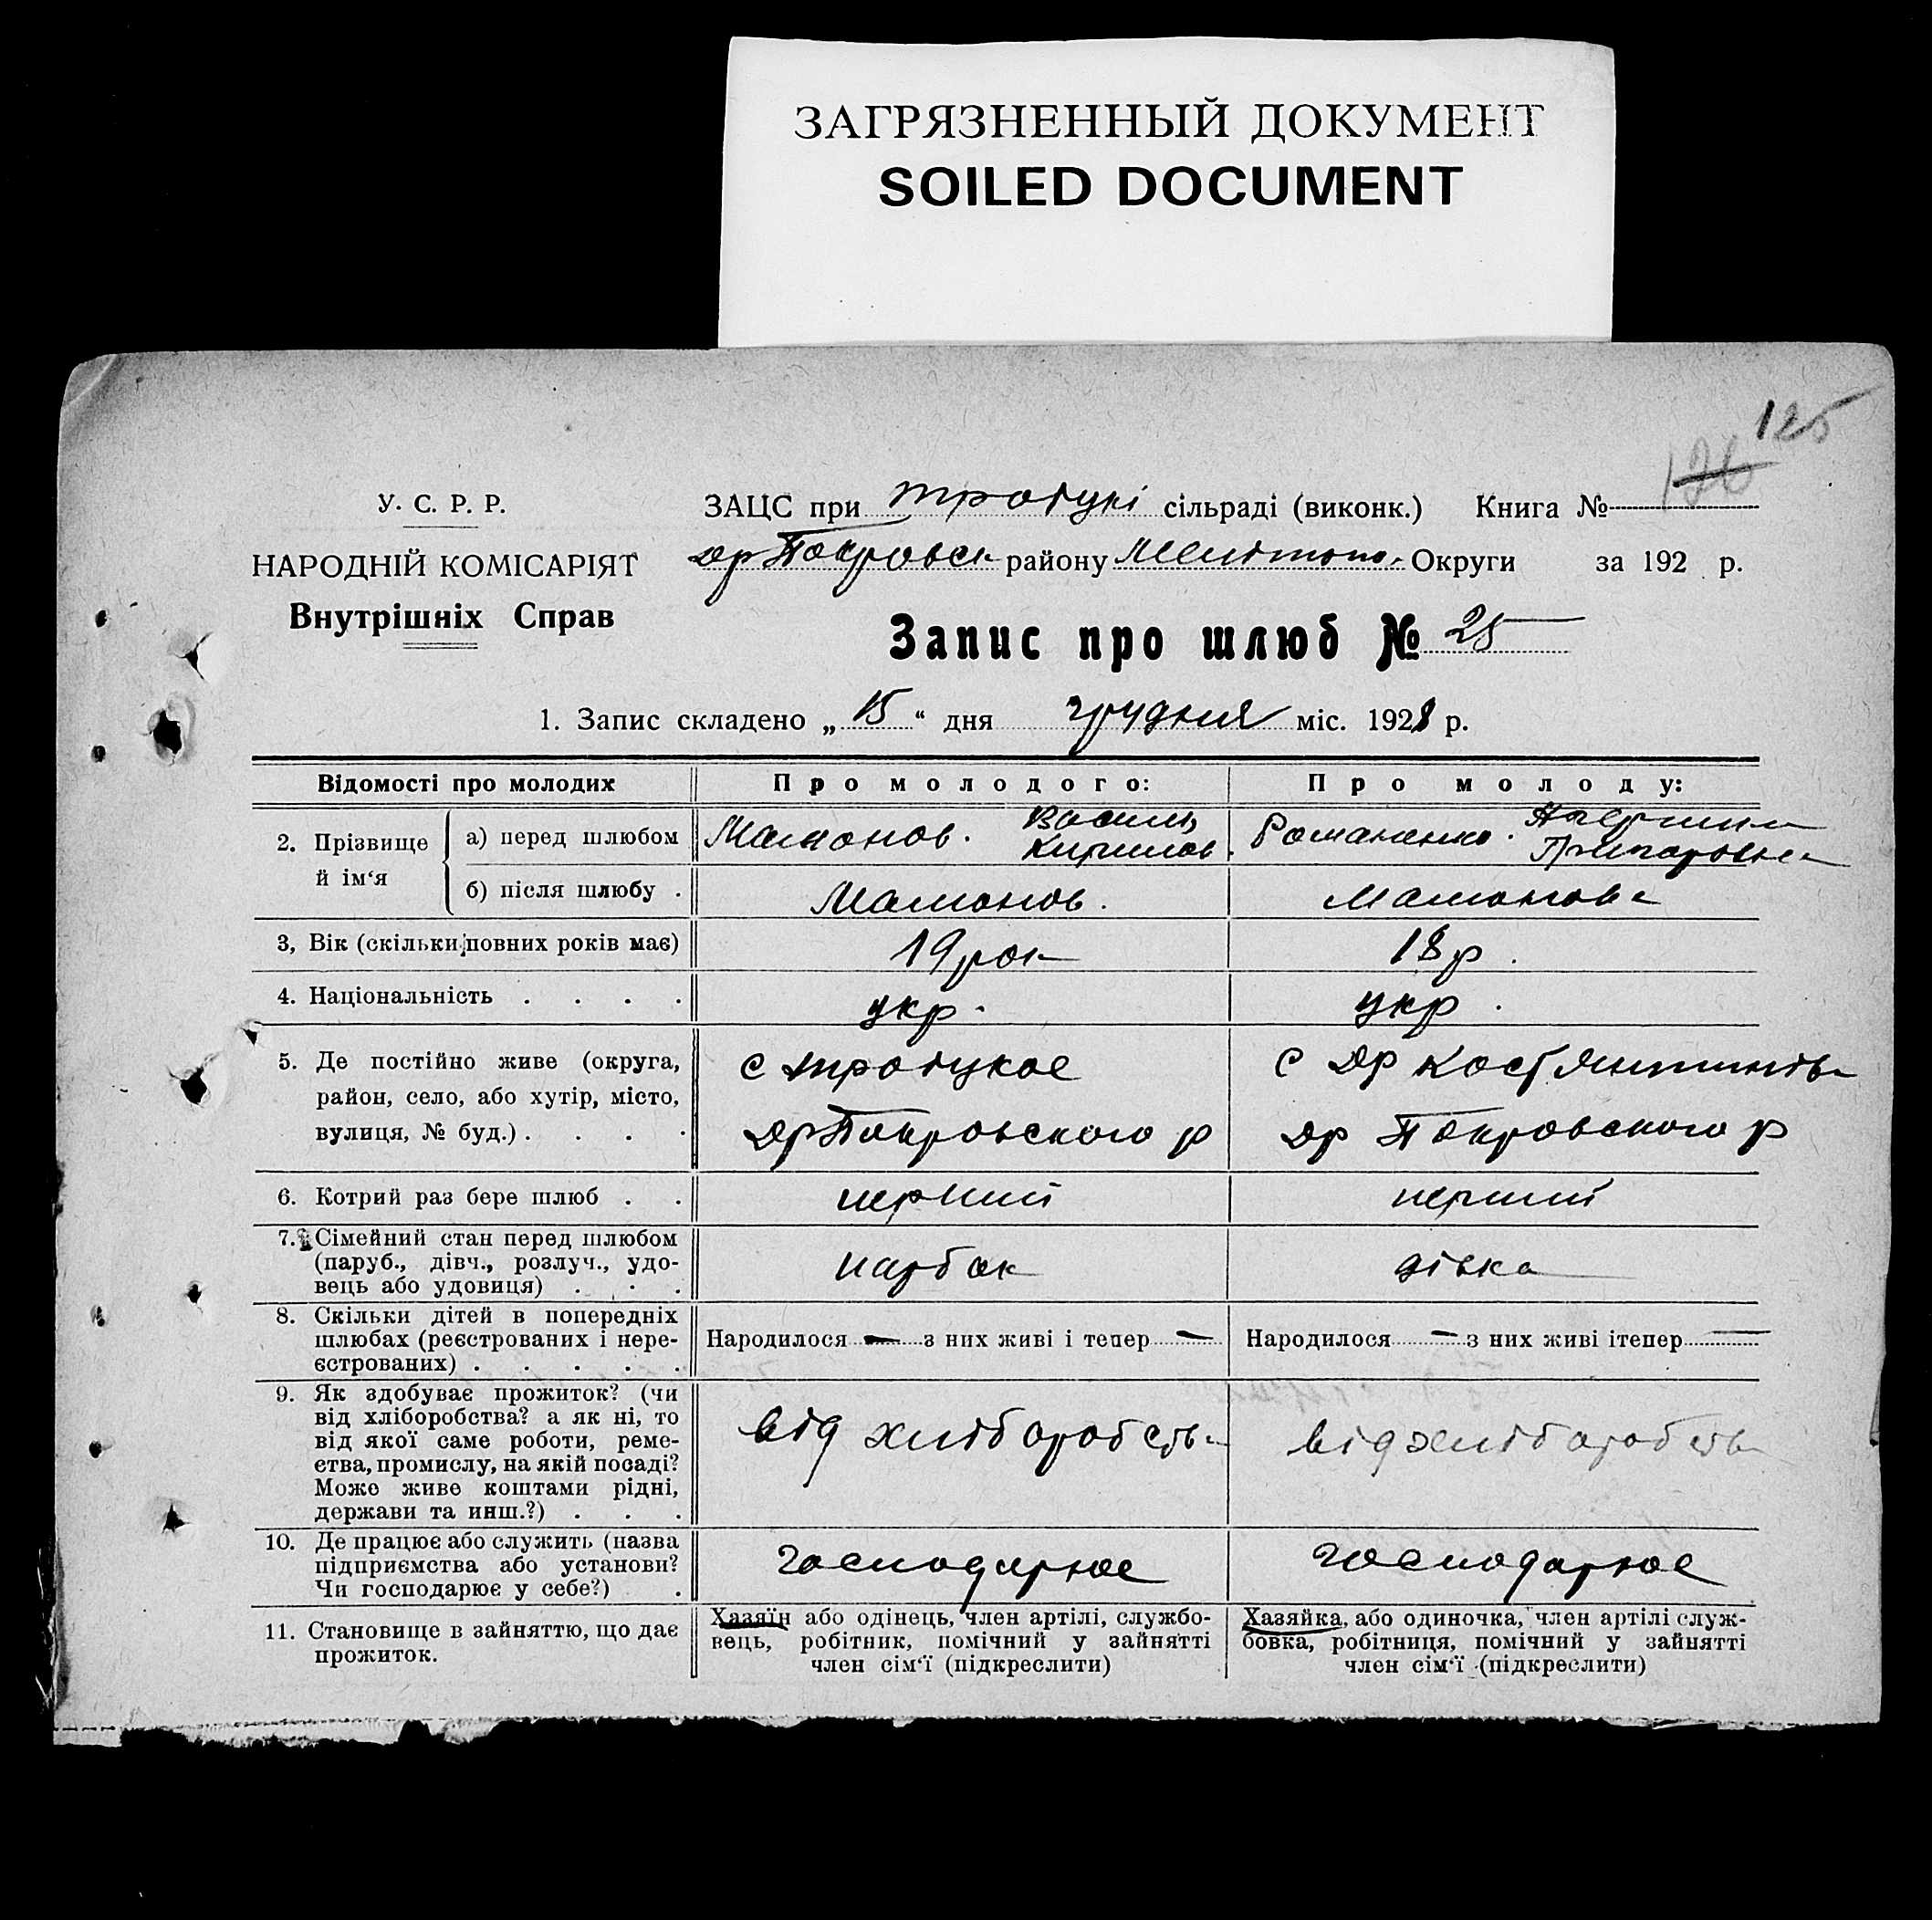 ЗАГРЯЗНЕННЫЙ ДОКУМЕНТ
SOILED DOCUMENT
125
126
У. С. Р. Р.
ЗАЦС при Троїцкі сільраді (виконк.) Книга №
НАРОДНІЙ КОМІСАРІЯТ
др Покровськ району Мелітопо. Округи за 192 р.
Внутрішніх Справ
Запис про шлюб № 25
1. Запис складено „ 15 “ дня грудня міс. 1928 р.
Відомості про молодих
Про молодого:
Про молоду:
2. Прізвище й ім‘я
а) перед шлюбом
Мамонов. Василь Кирилов.
Романенко.
б) після шлюбу .
Мамонов.
Мамонова
3, Вік (скільки повних років має)
19 рок
18 р.
4. Національність . . . .
укр.
укр.
5. Де постійно живе (округа,
район, село, або хутір, місто,
вулиця, № буд.) . . . .
с Троїцкое
др Покровського р
с др Костянтинів
др Покровського р
6. Котрий раз бере шлюб . .
перший
перший
7. Сімейний стан перед шлюбом
(паруб., дівч., розлуч., удо-
вець або удовиця) . . .
парбок
дівка
8. Скільки дітей в попередніх
шлюбах (реєстрованих і нере-
єстрованих) . . . . .
Народилося — з них живі і тепер —
Народилося — з них живі ітепер —
9. Як здобуває прожиток? (чи
від хліборобства? а як ні, то
від якої саме роботи, реме-
ства, промислу, на якій посаді?
Може живе коштами рідні,
держави та инш.?) . . .
від хліборобств
від хліборобств
10. Де працює або служить (назва
підприємства або установи?
Чи господарює у себе?) .
господарює
господарює
11. Становище в зайняттю, що дає
прожиток.
Хазяїн або одінець, член артілі, службо-
вець, робітник, помічний у зайнятті
член сім‘ї (підкреслити)
Хазяйка, або одиночка, член артілі служ-
бовка, робітниця, помічний у зайнятті
член сім‘ї (підкреслити)